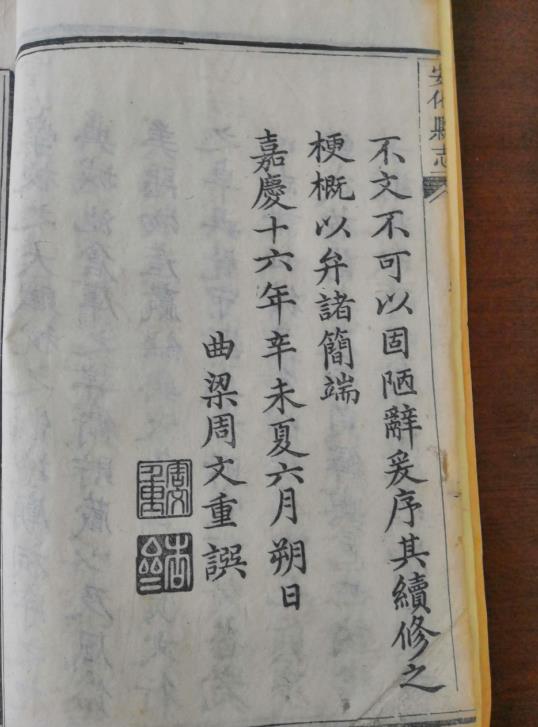 安化縣志
不文不可以固陋辭爰序其續修之
梗概以弁諸簡端
嘉慶十六年辛未夏六月朔日
曲梁周文重譔